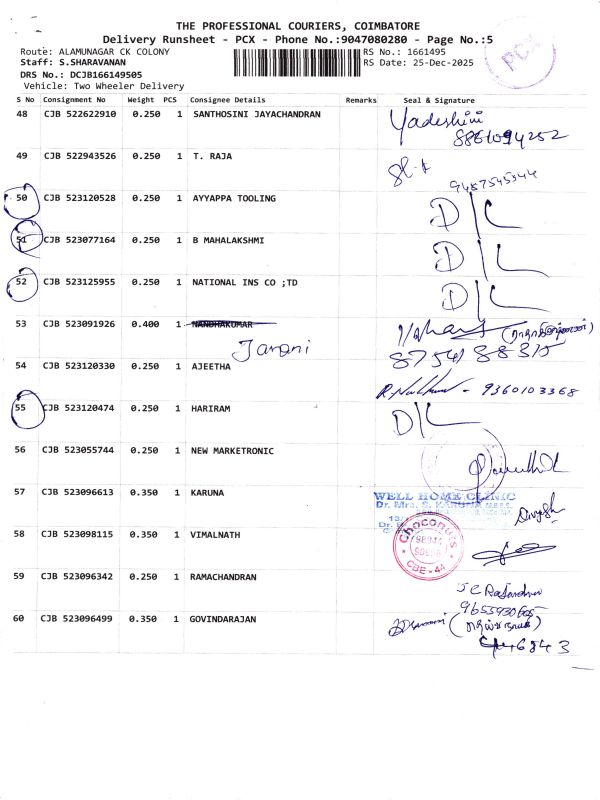 THE PROFESSIONAL COURIERS, COIMBATORE
Delivery Runsheet - PCX - Phone No.:9047080280 - Page No.:5
Route: ALAMUNAGAR CK COLONY RS No.: 1661495
Staff: S.SHARAVANAN RS Date: 25-Dec-2025
DRS No.: DCJB166149505
Vehicle: Two Wheeler Delivery
PCX
S No Consignment No Weight PCS Consignee Details Remarks Seal & Signature
48 CJB 522622910 0.250 1 SANTHOSINI JAYACHANDRAN Yadeshini
8861094252
49 CJB 522943526 0.250 1 T. RAJA
9487545344
50 CJB 523120528 0.250 1 AYYAPPA TOOLING D/L
51 CJB 523077164 0.250 1 B MAHALAKSHMI D/L
52 CJB 523125955 0.250 1 NATIONAL INS CO ;TD D/L
53 CJB 523091926 0.400 1 NANDHAKUMAR
Jarani
87541 88315
54 CJB 523120330 0.250 1 AJEETHA
9360103368
55 CJB 523120474 0.250 1 HARIRAM D/L
56 CJB 523055744 0.250 1 NEW MARKETRONIC
57 CJB 523096613 0.350 1 KARUNA WELL HOME CLINIC
Dr. Mrs. S. KARUNA M.B.B.S.
Divyesh
58 CJB 523098115 0.350 1 VIMALNATH
CBE - 44
59 CJB 523096342 0.250 1 RAMACHANDRAN
60 CJB 523096499 0.350 1 GOVINDARAJAN